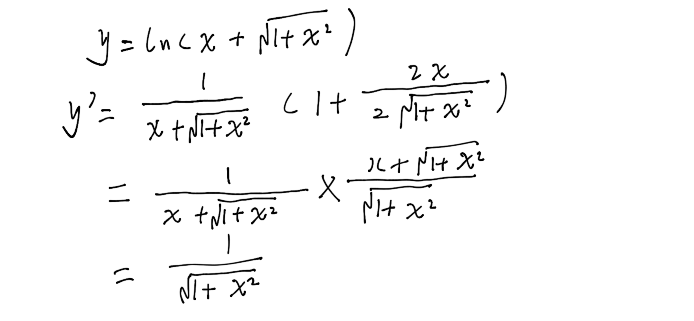 y = ln(x + √(1+x²))
y' = 1/(x+√(1+x²)) (1 + 2x/(2√(1+x²)))
= 1/(x+√(1+x²)) × (x+√(1+x²))/√(1+x²)
= 1/√(1+x²)